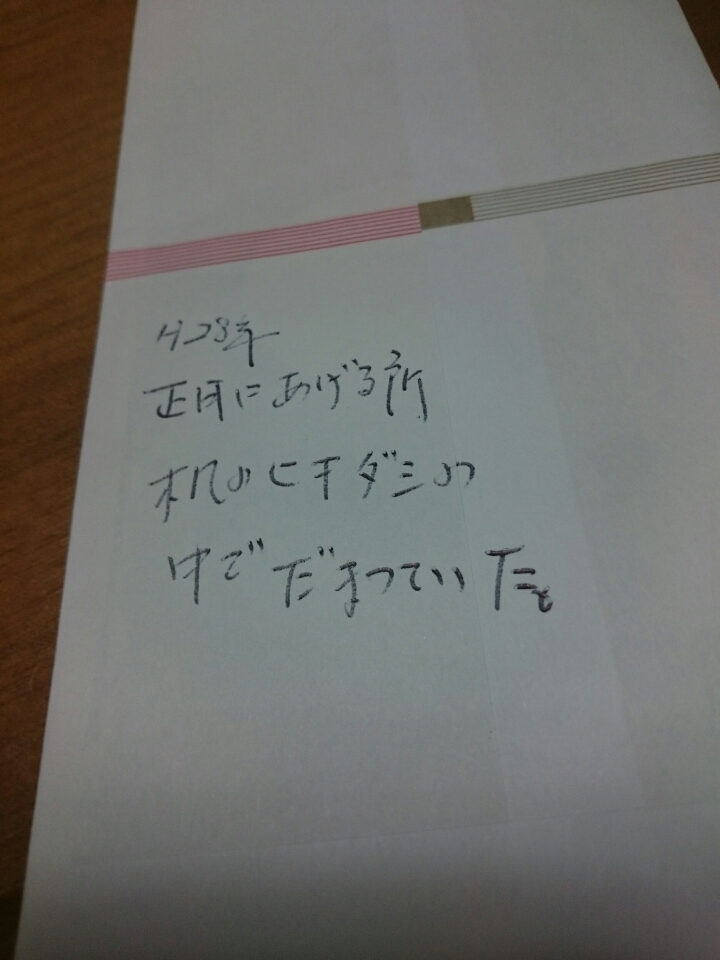 H28年
正月にあげる所
机のヒキダシの
中でだまっていた。